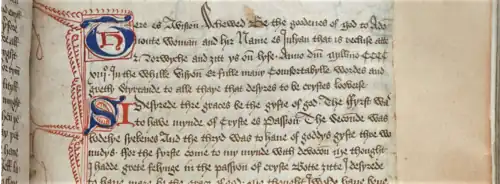 Here es A vision Schewed Be the goodenes of god to Ade
uoute Woman and hir Name es Julyan that is recluse atte
Norwyche and ȝitt ys on lyfe. Anno dm̄ millmo CCCC
xiij. In the whilke visyon er fulle many Comfortabylle wordes and
gretly styrrande to alle thaye that desyres to be crystes looverse
I Desyrede thre graces be the gyfte of god The ffyrst was
to have mynde of Cryste es Passion The Secounde was
bodelye syekenes And the thryd was to haue of goddys gyfte thre wo
undys. ffor the fyrste come to my mynde with devocon me thought
I hadde grete felynge in the passyon of cryste Botte ȝitte I desyrede
to haue mare be the grace of god. me thought I wolde haue bene